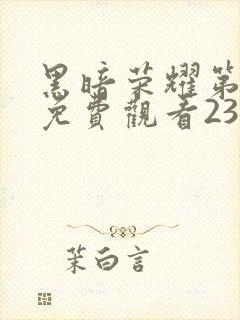 黑暗荣耀第
免費觀看23
茉白言